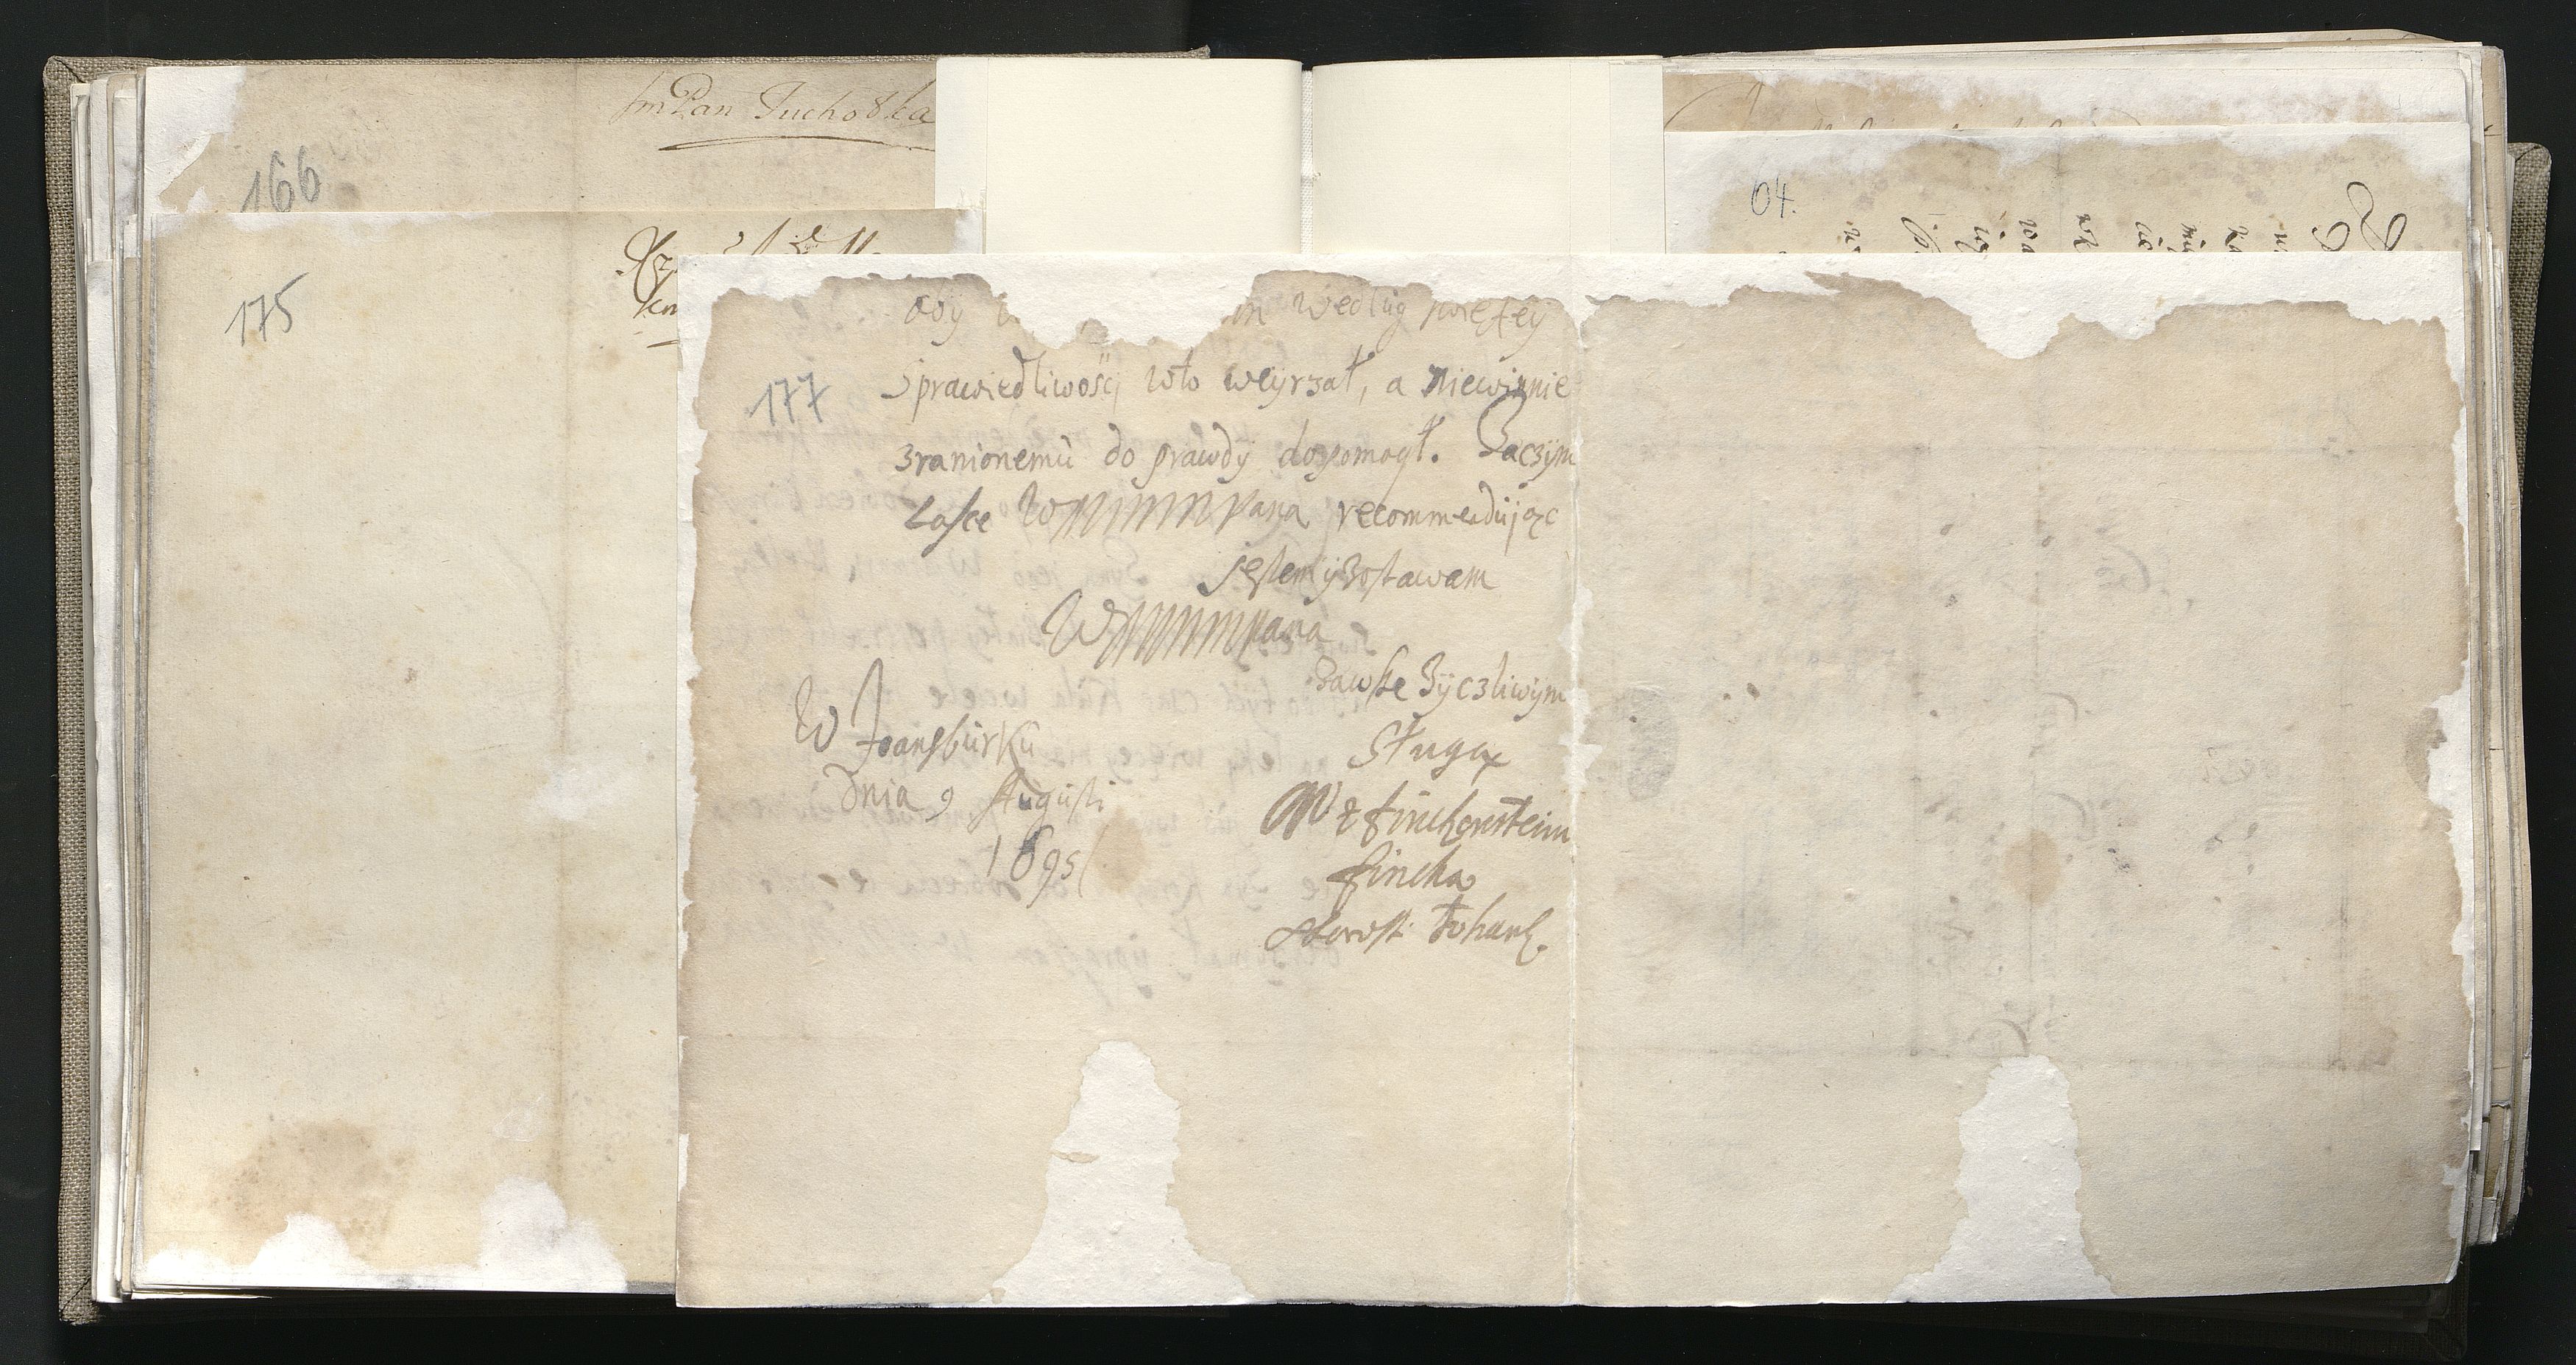 JmPan Tucholka
166
175
04.
aby według swiętey
177
sprawiedliwośći wto weyrzał, a niewinnie
zranionemu do prawdÿ dopomogł. Zaczÿm
Łasce WMMMMPana recommendując
jestem ÿ zostawam
WMMMMPana
Zawsze Zÿczliwÿm
Sługą
W Joansburku
Dnia 9 Augusti
1695
Finckenstein
Fincka
Starosta Johansb.